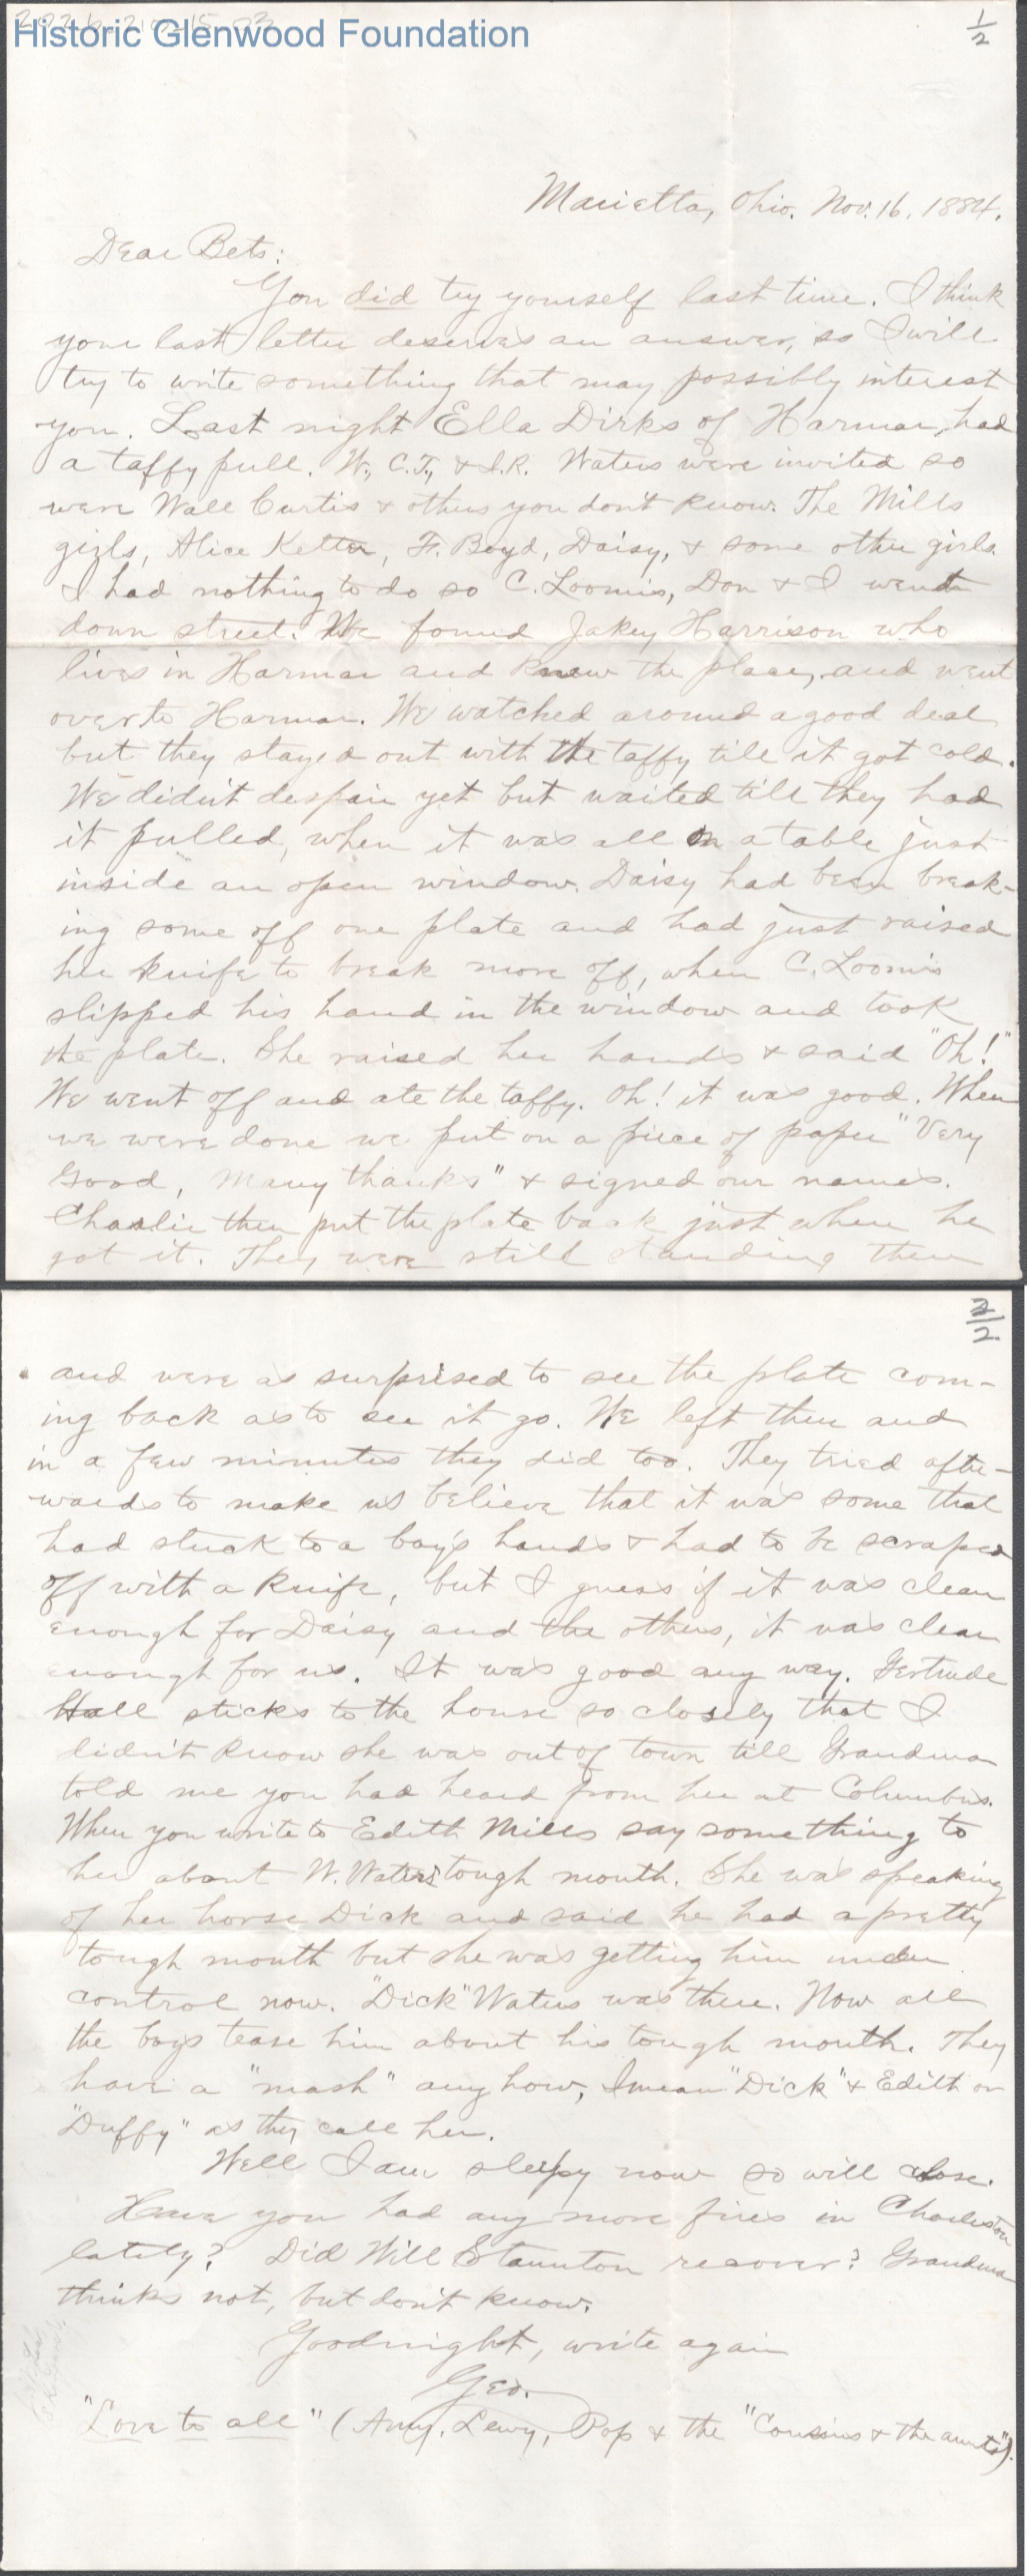 Historic Glenwood Foundation
1/2
Marietta, Ohio. Nov. 16, 1884.
Dear Bets:
You did try yourself last time. I think
your last letter deserves an answer, so I will
try to write something that may possibly interest
you. Last night Ella Dirks of Harmar, had
a taffy pull. W., C.T., & I.R. Waters were invited so
were Wall Curtis & others you don't know. The Mills
girls, Alice Kelter, F. Boyd, Daisy, & some other girls.
I had nothing to do so C. Loomis, Don & I went
down street. We found Jakey Harrison who
lives in Harmar and knew the place, and went
over to Harmar. We watched around a good deal
but they stayed out with the taffy till it got cold.
We didn't despair yet but waited till they had
it pulled, when it was all on a table just
inside an open window. Daisy had been break-
ing some off one plate and had just raised
her knife to break more off, when C. Loomis
slipped his hand in the window and took
the plate. She raised her hands & said "Oh!"
We went off and ate the taffy. Oh! it was good. When
we were done we put on a piece of paper "Very
Good, Many thanks" & signed our names.
Charlie then put the plate back just where he
got it. They were still standing there
2/2
and were as surprised to see the plate com-
ing back as to see it go. We left then and
in a few minutes they did too. They tried after-
wards to make us believe that it was some that
had stuck to a boy's hands & had to be scraped
off with a knife, but I guess if it was clean
enough for Daisy and the others, it was clean
enough for us. It was good any way. Gertrude
Hall sticks to the house so closely that I
didn't know she was out of town till Grandma
told me you had heard from her at Columbus.
When you write to Edith Mills say something to
her about W. Waters tough mouth. She was speaking
of her horse Dick and said he had a pretty
tough mouth but she was getting him under
control now. "Dick" Waters was there. Now all
the boys tease him about his tough mouth. They
have a "mash" any how, I mean "Dick" & Edith or
"Duffy" as they call her.
Well I am sleepy now so will close.
Have you had any more fires in Charleston
lately? Did Will Staunton recover? Grandma
thinks not, but don't know.
Goodnight, write again
Geo.
"Love to all" (Amy, Lewy, Pop & the "Cousins & the aunts").